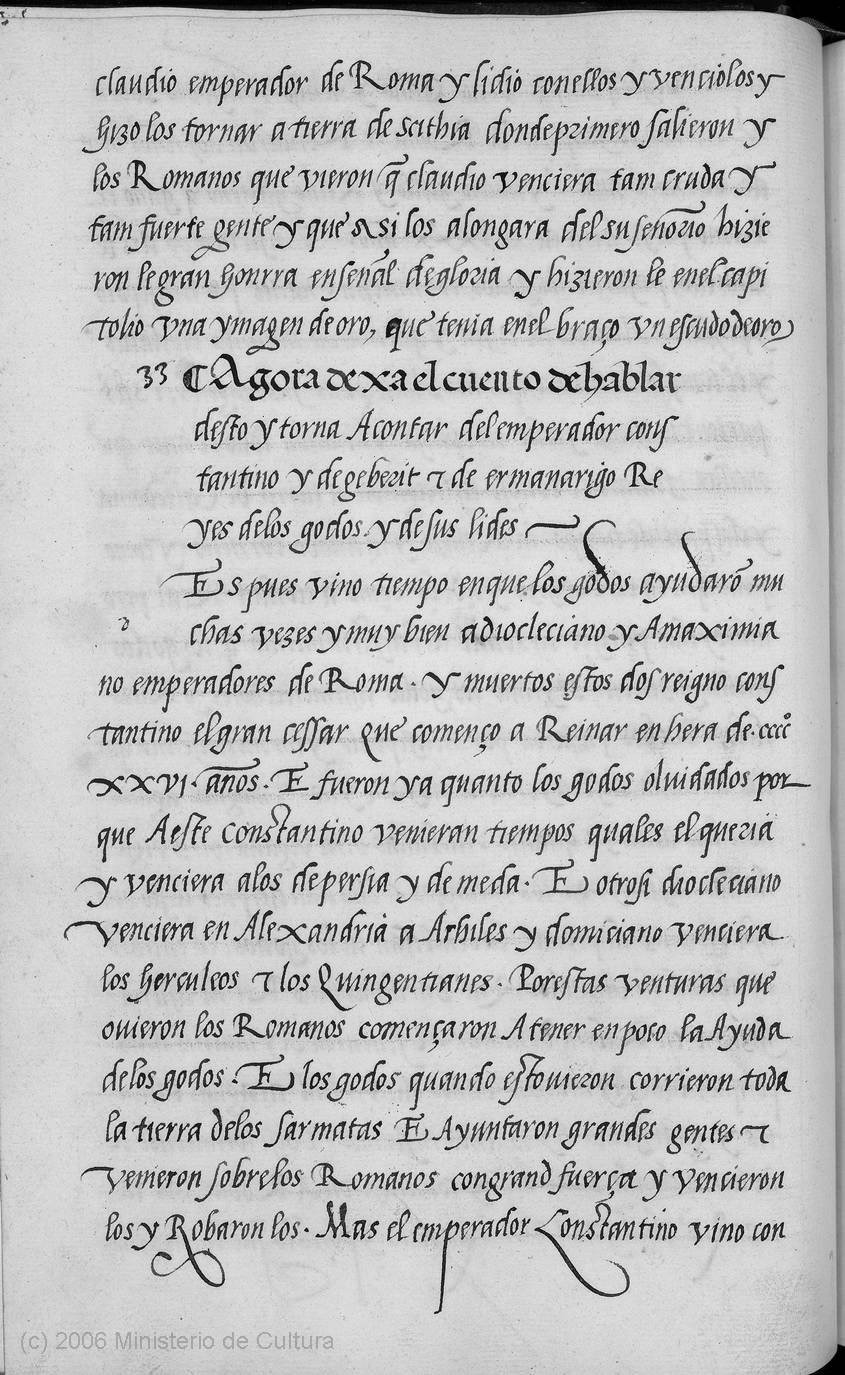 claudio emperador de Roma y lidio conellos y venciolos y
hizo los tornar a tierra de scithia dondeprimero salieron y
los Romanos que vieron q̃ claudio venciera tam cruda y
tam fuerte gente y que asi los alongara del su señorio hizie
ron le gran honrra en señal de gloria y hizieron le enel capi
tolio vna ymagen de oro, que tenia enel braço vn escudo de oro
33 ¶ Agora dexa el cuento de hablar
desto y torna Acontar del emperador cons
tantino y de geberit ⁊ de ermanarigo Re
yes delos godos. y de sus lides
Es pues vino tiempo en que los godos ayudarõ mu
chas vezes y muy bien a diocleciano y Amaximia
no emperadores de Roma. y muertos estos dos reigno cons
tantino el gran cessar que començo a Reinar en hera de. ccccº
xxvj. años. E fueron ya quanto los godos olvidados por
que Aeste constantino venieran tiempos quales el queria
y venciera alos de persia y de meda. E otrosi diocleciano
venciera en Alexandria a Achiles y domiciano venciera
los herculeos ⁊ los Quingentianes. Por estas venturas que
ouieron los Romanos començaron Atener en poco la Ayuda
delos godos. E los godos quando esto vieron corrieron toda
la tierra delos sarmatas E Ayuntaron grandes gentes ⁊
venieron sobrelos Romanos con grand fuerça y vencieron
los y Robaron los. Mas el emperador Constantino vino con
(c) 2006 Ministerio de Cultura